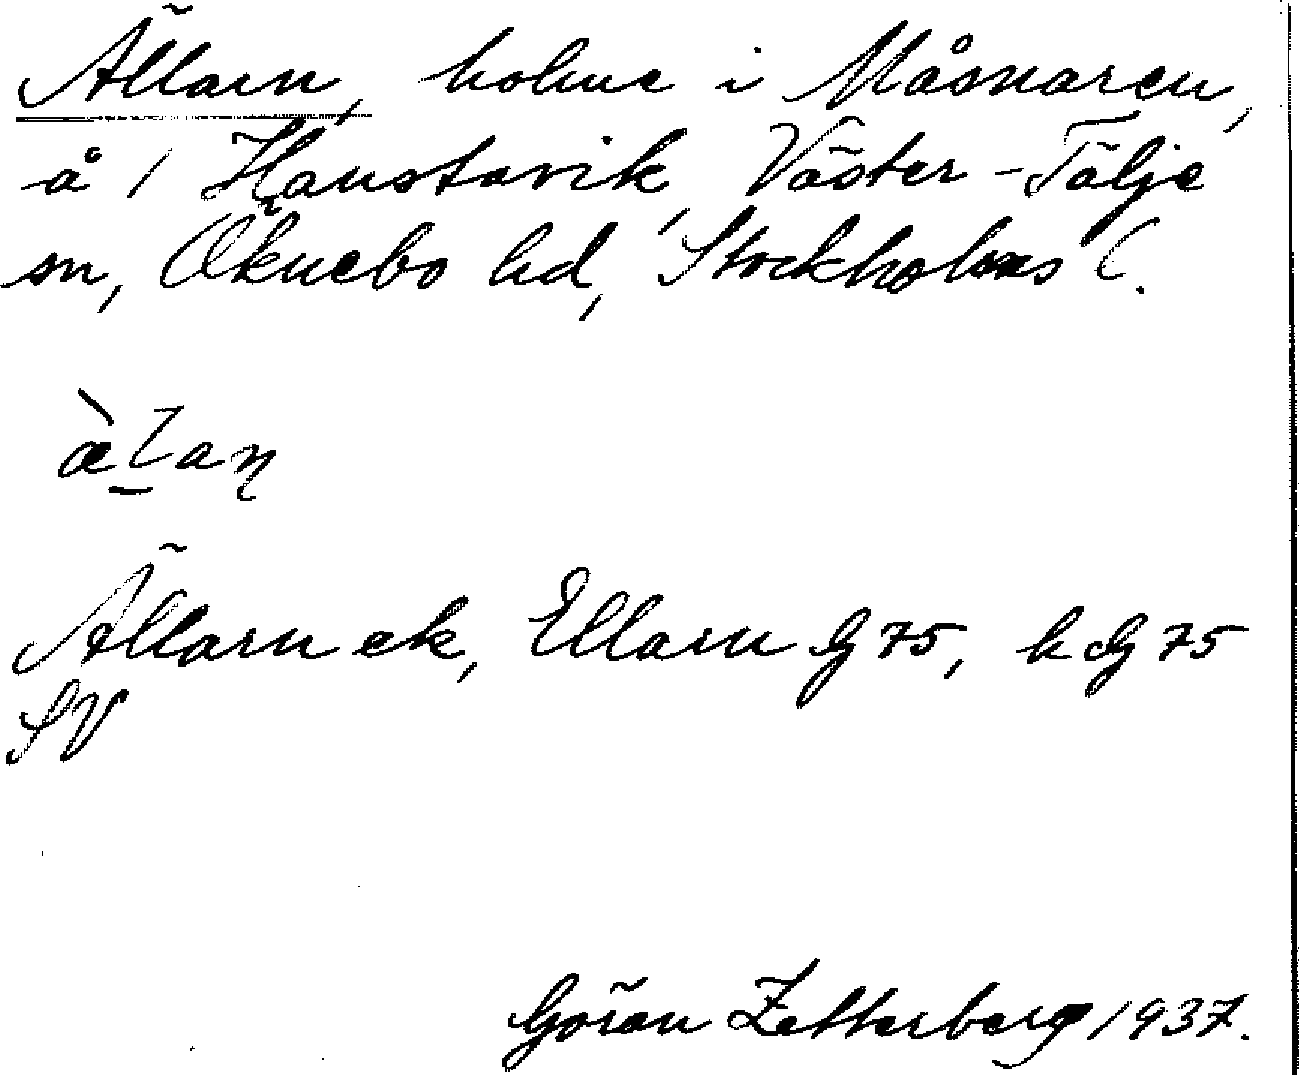 Ällarn, holme i Måsnaren,
å 1 Haustavik, Väster-Tälje
sn, Öknebo hd, Stockholms l.
Ällarn ek, Ellarn Jg 75, h dJg 75
SV
Göran Zetterberg 1937.